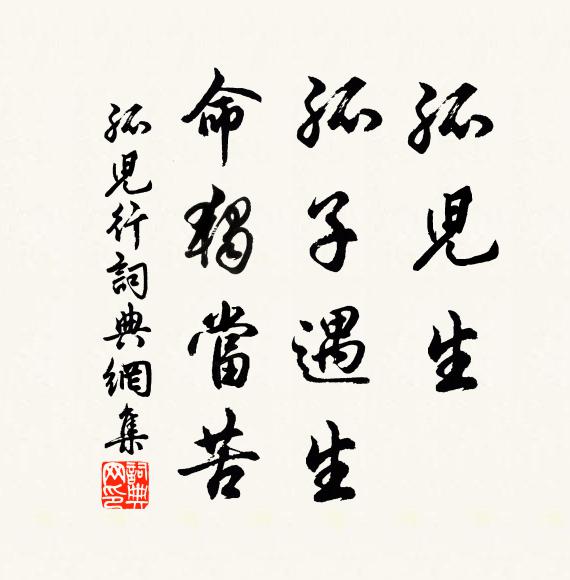 孤兒生
孤子遇生
命獨當苦
孤兒行詞典網集
詞典网印